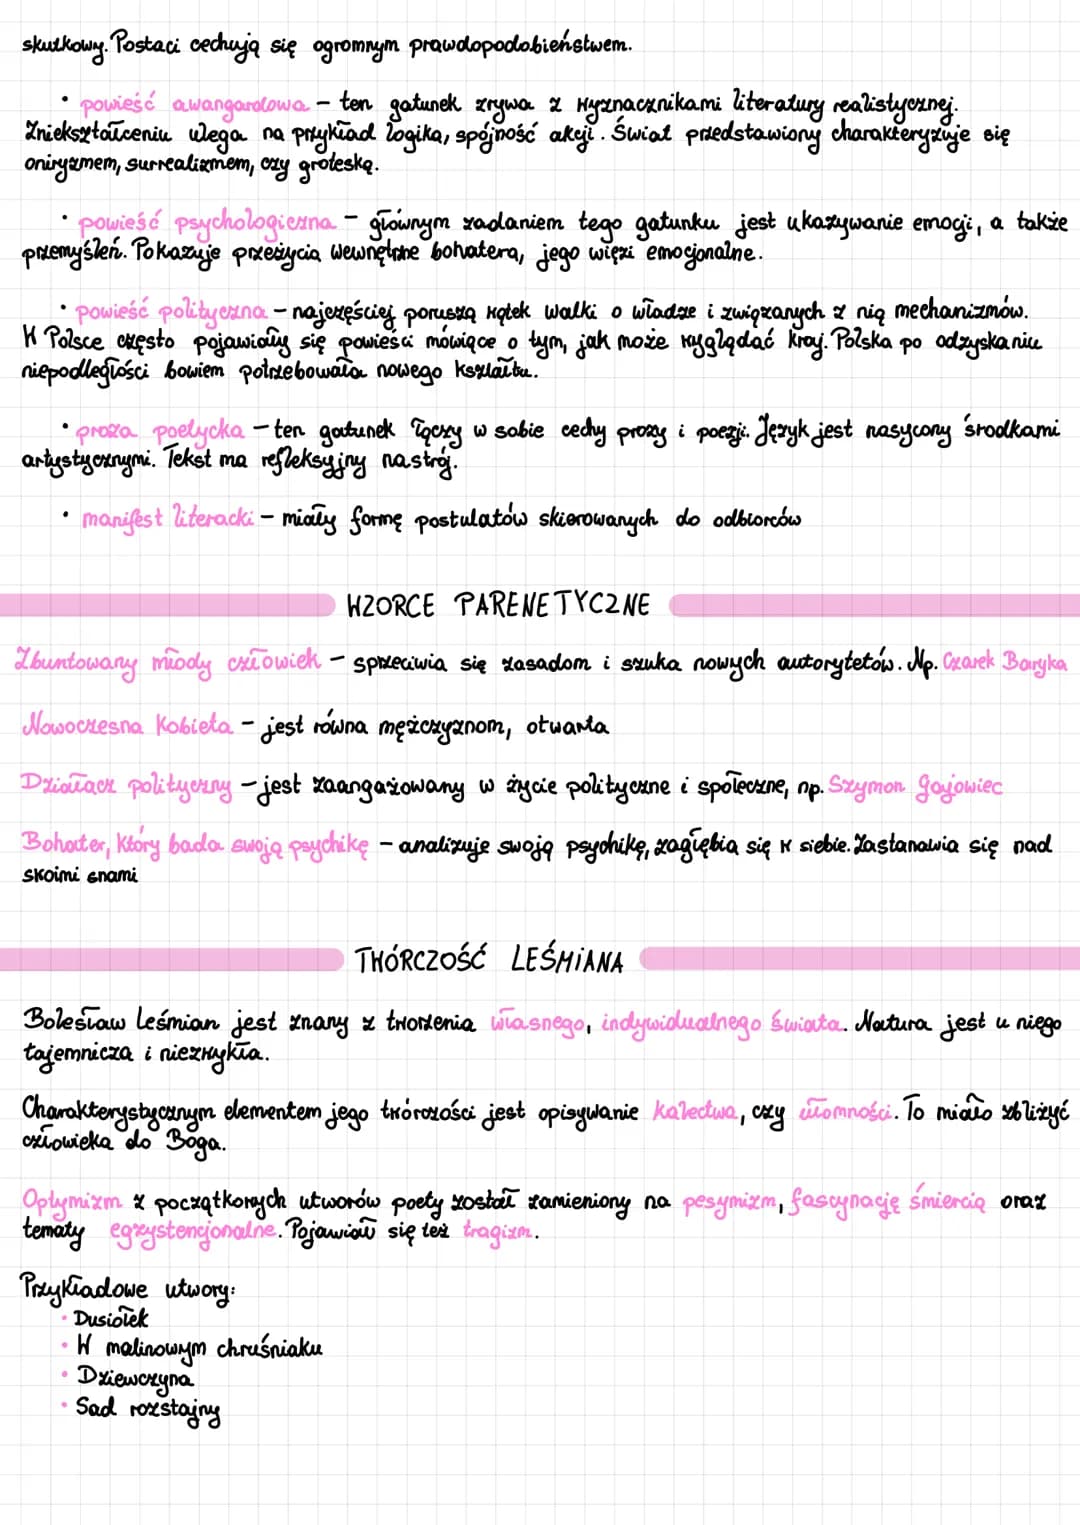 skutkowy. Postaci cechują się ogromnym prawdopodobieństwem.
• powieść awangardowa – ten gatunek zrywa z wyznacznikami literatury realistycznej.
Zniekształceniu ulega na przykład logika, spójność akcji. Świat przedstawiony charakteryzuje się
oniryzmem, surrealizmem, czy groteską.
• powieść psychologiczna – głównym zadaniem tego gatunku jest ukazywanie emocji, a także
przemyśleń. Pokazuje przeżycia wewnętrzne bohatera, jego więzi emocjonalne.
• powieść polityczna – najczęściej porusza wątek walki o władze i związanych z nią mechanizmów.
W Polsce często pojawiały się powieści mówiące o tym, jak może wyglądać kraj. Polska po odzyskaniu
niepodległości bowiem potrzebowała nowego kształtu.
• proza poetycka – ten gatunek łączy w sobie cechy prozy i poezji. Język jest nasycony środkami
artystycznymi. Tekst ma refleksyjny nastrój.
• manifest literacki – miały formę postulatów skierowanych do odbiorców
WZORCE PARENETYCZNE
Zbuntowany młody człowiek – sprzeciwia się zasadom i szuka nowych autorytetów. Np. Czarek Baryka
Nowoczesna kobieta – jest równa mężczyznom, otwarta
Działacz polityczny – jest zaangażowany w życie polityczne i społeczne, np. Szymon Gajowiec
Bohater, który bada swoją psychikę – analizuje swoją psychikę, zagłębia się w siebie. Zastanawia się nad
swoimi snami
TWÓRCZOŚĆ LEŚMIANA
Bolesław Leśmian jest znany z tworzenia własnego, indywidualnego świata. Natura jest u niego
tajemnicza i niezwykła.
Charakterystycznym elementem jego twórczości jest opisywanie kalectwa, czy ułomności. To miało zbliżyć
człowieka do Boga.
Optymizm z początkowych utworów poety został zamieniony na pesymizm, fascynację śmiercią oraz
tematy egzystencjonalne. Pojawiał się też tragizm.
Przykładowe utwory:
• Dusiołek
• W malinowym chruśniaku
• Dziewczyna
• Sad rozstajny